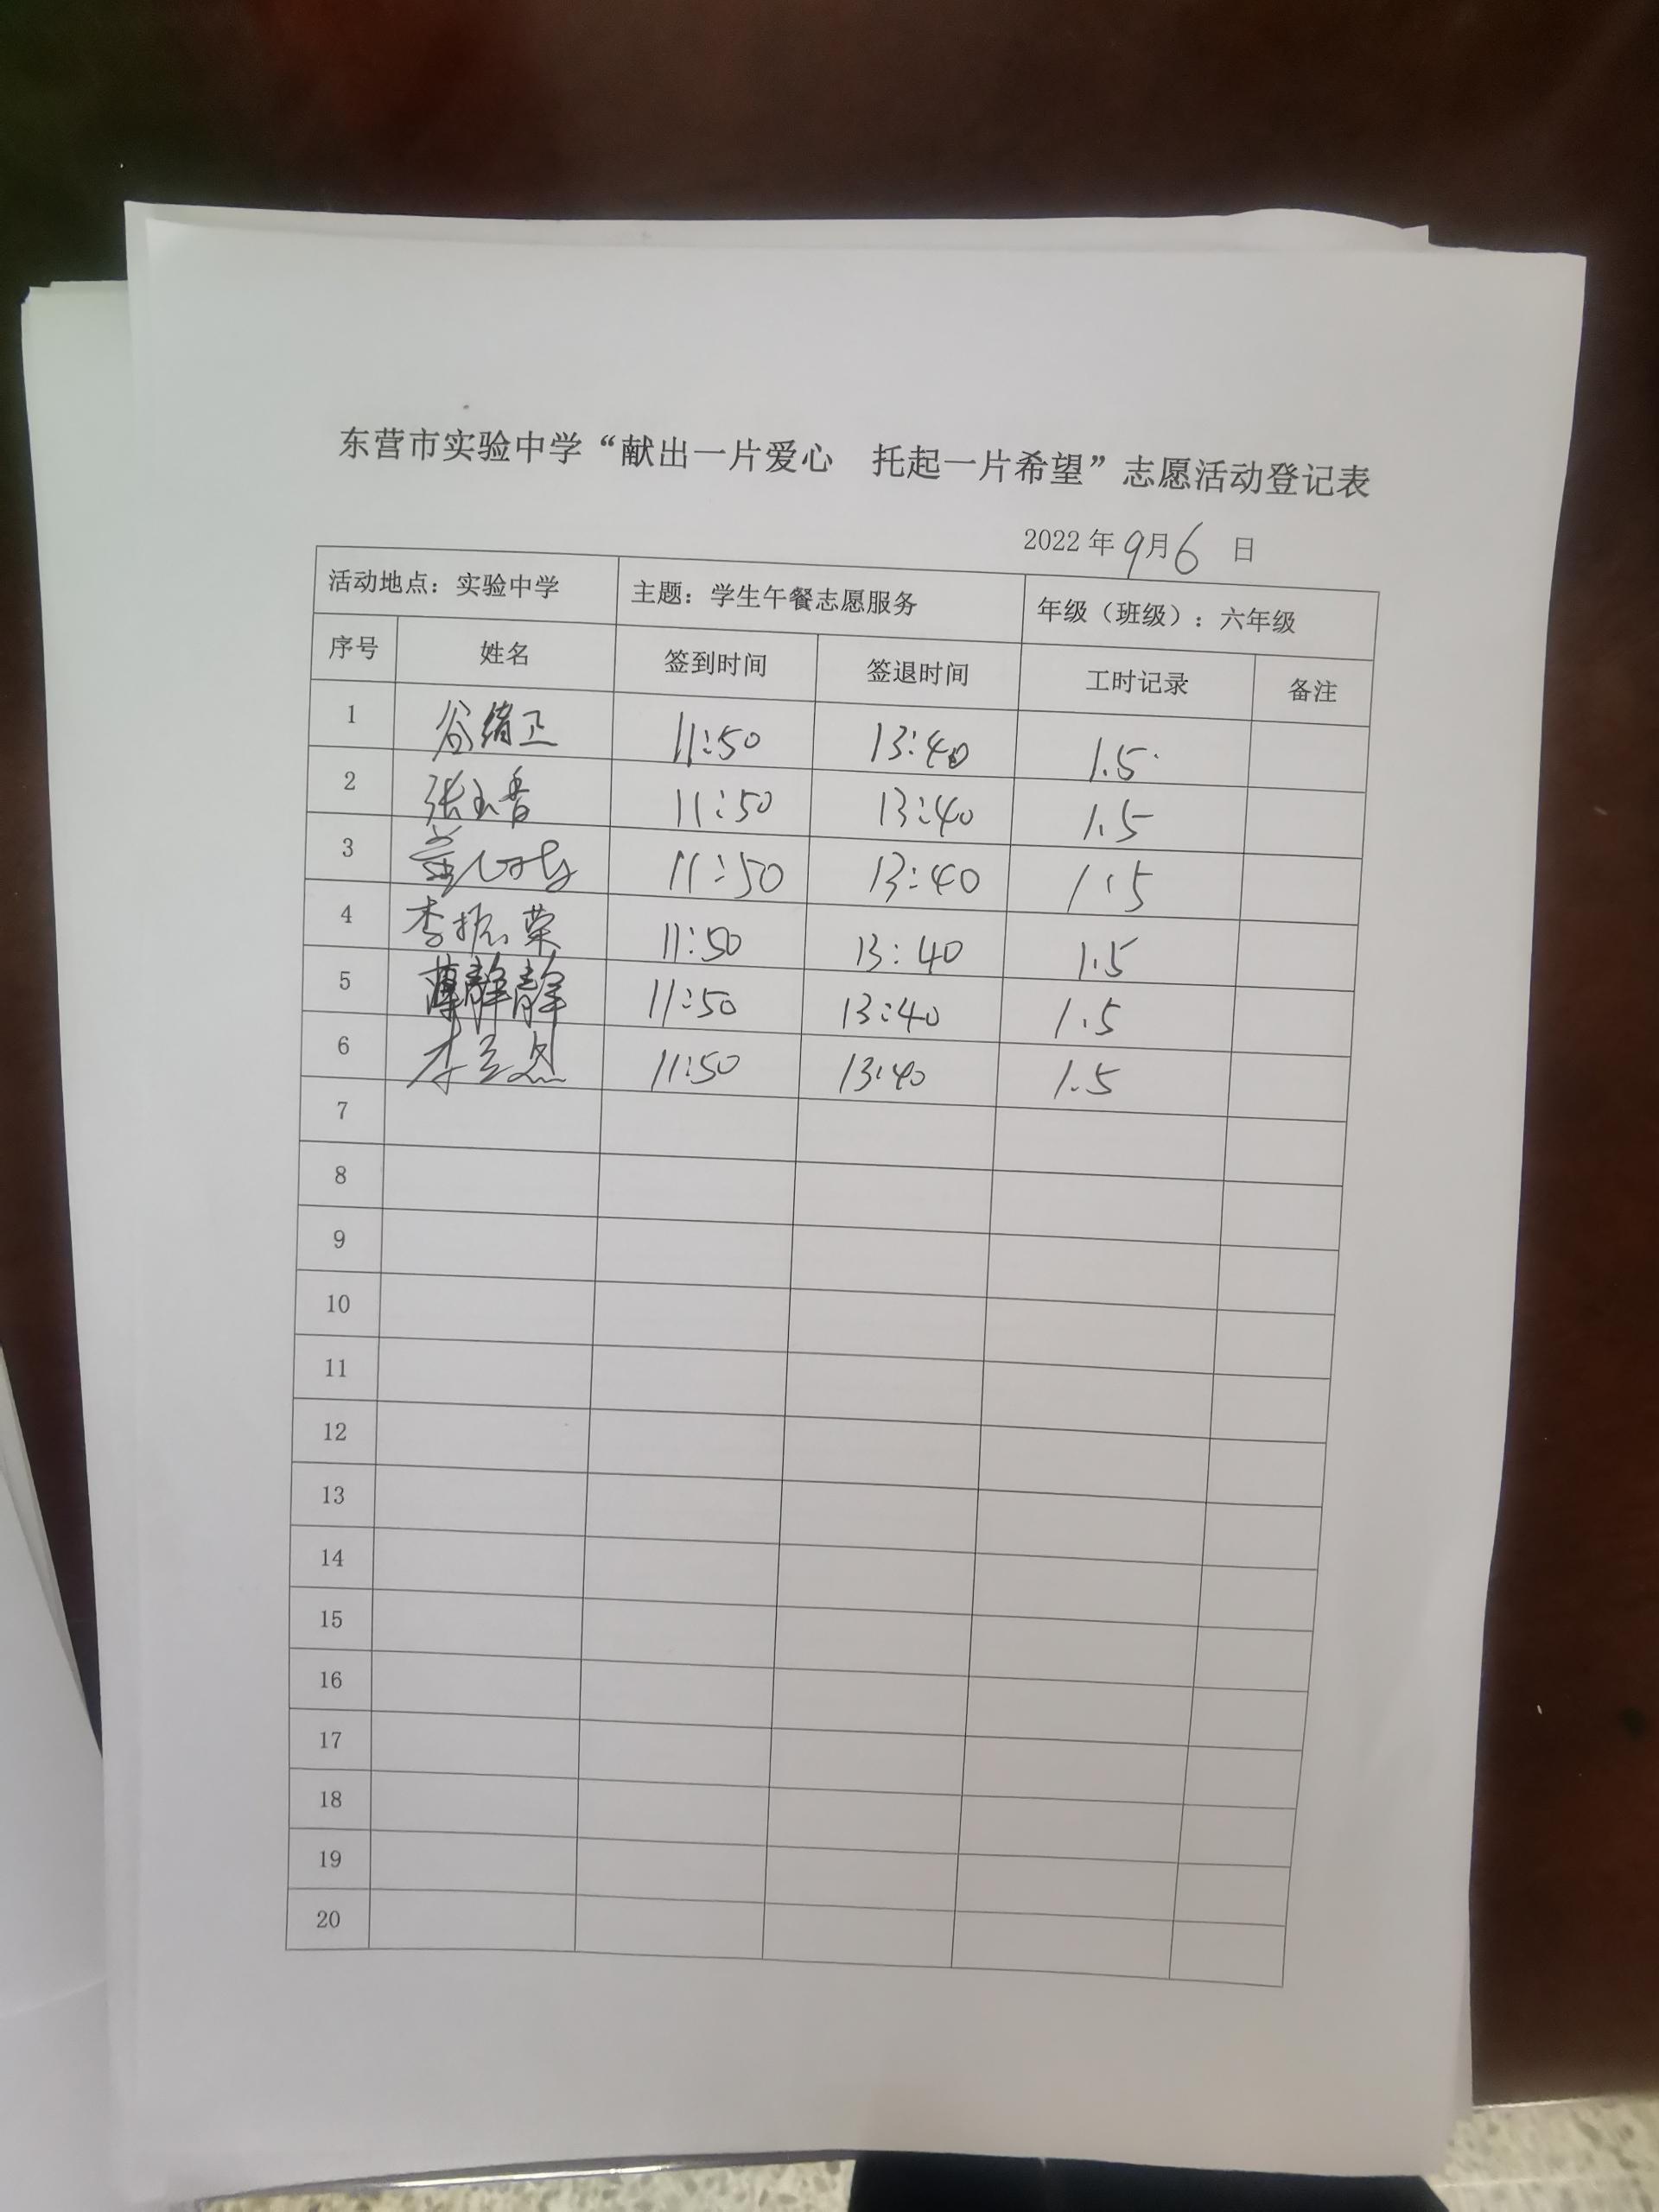 东营市实验中学“献出一片爱心 托起一片希望”志愿活动登记表
2022年9月6日
活动地点：实验中学 主题：学生午餐志愿服务 年级（班级）：六年级
序号 姓名 签到时间 签退时间 工时记录 备注
1 谷绪卫 11:50 13:40 1.5
2 张玉香 11:50 13:40 1.5
3 11:50 13:40 1.5
4 李振荣 11:50 13:40 1.5
5 薄静静 11:50 13:40 1.5
6 李 11:50 13:40 1.5
7
8
9
10
11
12
13
14
15
16
17
18
19
20